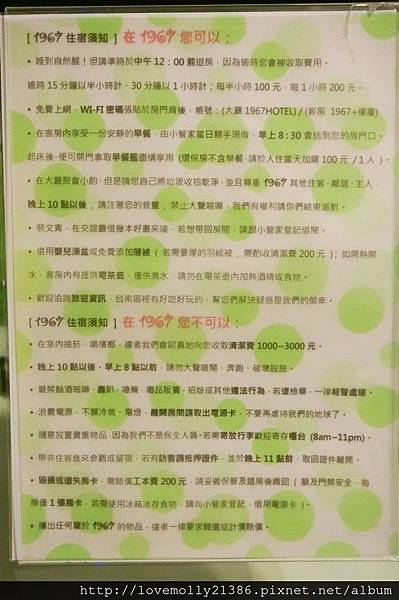 [ 1967 住宿須知 ] 在 1967 您可以：
睡到自然醒！但請準時於中午 12：00 前退房，因為逾時您會被收取費用。
逾時 15 分鐘以半小時計、30 分鐘以 1 小時計；每半小時 100 元，每 1 小時 200 元。
免費上網，WI-FI 密碼張貼於房門背後，帳號：(大廳 1967HOTEL) / (客房 1967+樓層)
在客房內享受一份安靜的早餐，由小管家當日親手現做，早上 8：30 會送到您的房門口。
起床後，便可開門拿取早餐籃盡情享用 (環保房不含早餐，請於入住當天加購 100 元 / 1 人 )。
在大廳聚會小酌，但是請您自己將垃圾收拾乾淨，並且尊重 1967 其他住客、鄰居、主人，
晚上 10 點以後，請注意您的音量，禁止大聲喧嘩，我們有權利請你們結束派對。
裝文青，在交誼廳借幾本好書來嗑，若想帶回房間，請跟小管家登記借閱。
借用嬰兒澡盆或免費添加薄被 ( 若需要厚的羽絨被，需酌收清潔費 200 元 )；如需熱開
水，客房內有提供電茶壺，僅供煮水，請勿在電茶壺內加熱酒精或食物。
歡迎洽詢旅遊資訊，台南哪裡有好吃好玩的，幫您們解決疑惑是我們的榮幸。
[ 1967 住宿須知 ] 在 1967 您不可以：
在室內抽菸、嚼檳榔，違者我們會認真地向您收取清潔費 1000~3000 元。
晚上 10 點以後，早上 8 點以前，請勿大聲喧鬧、奔跑、破壞設施。
嚴禁酗酒喧嘩、轟趴、嗑藥、毒品販賣、招妓或其他違法行為，若遭檢舉，一律報警處理。
浪費電源，不關冷氣、電燈，離開房間請取出電源卡，不要再虐待我們的地球了。
隨意放置貴重物品，因為我們不是保全人員，若需寄放行李歡迎寄存櫃台 (8am~11pm)。
帶非住客進來參觀或留宿，若有訪客請抵押證件，並於晚上 11 點前，取回證件離開。
毀損或遺失房卡，需賠償工本費 200 元，請妥善保管及退房後繳回 ( 顧及門禁安全，每
房僅 1 張房卡，若需使用冰箱冰存食物，請向小管家登記，借用電源卡 )。
攜出任何屬於 1967 的物品，違者一律要求歸還或計價賠償。
http://lovemolly21386.pixnet.net/album